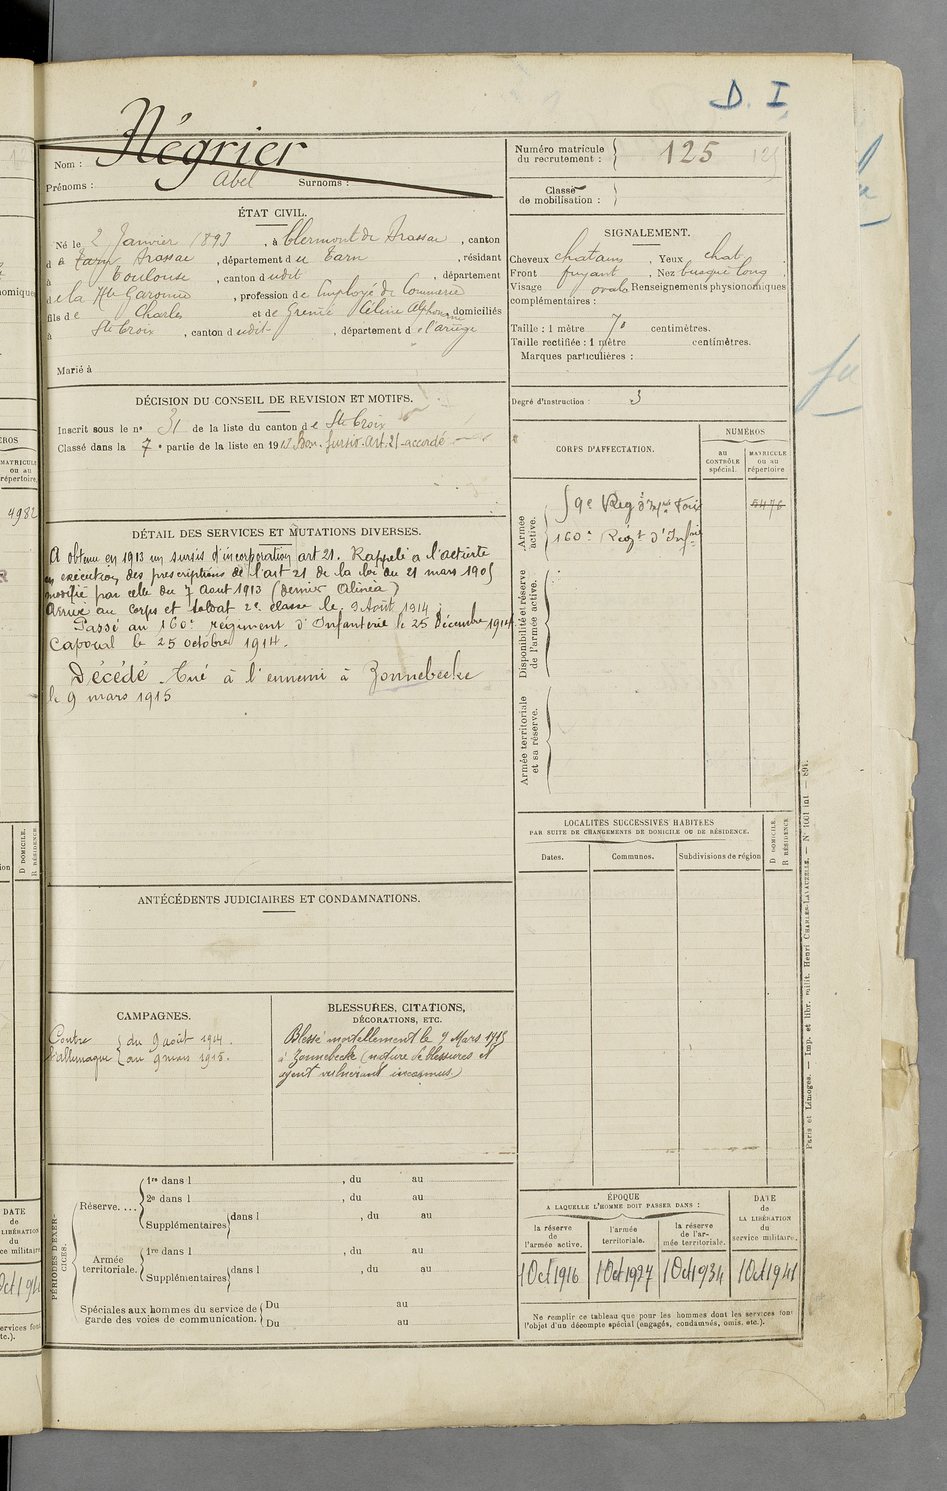 D. I
Nom : Négrier
Prénoms : Abel Surnoms :
Numéro matricule
du recrutement : 125
Classe
de mobilisation :
ÉTAT CIVIL.
Né le 2 Janvier 1893, à Clermont de Brassac, canton
de Brassac, département du Tarn, résidant
à Toulouse, canton dudit, département
de la Hte Garonne, profession de Employé de Commerce
fils de Charles et de Grenié Céline Alphonsine domiciliés
à Ste Croix, canton dudit, département de l'ariège
Marié à
SIGNALEMENT.
Cheveux chatains, Yeux chat.
Front fuyant, Nez busqué long
Visage ovale Renseignements physionomiques
complémentaires :
Taille : 1 mètre 70 centimètres.
Taille rectifiée : 1 mètre centimètres.
Marques particulières :
Degré d'instruction : 3
DÉCISION DU CONSEIL DE REVISION ET MOTIFS.
Inscrit sous le no 31 de la liste du canton de Ste Croix
Classé dans la 7e partie de la liste en 1913 Bon. sursis. Art. 21 - accordé
DÉTAIL DES SERVICES ET MUTATIONS DIVERSES.
A obtenu en 1913 un sursis d'incorporation art 21. Rappelé à l'activité
en exécution des prescriptions de l'art 21 de la loi du 21 mars 1905
modifié par celle du 7 Aout 1913 (dernier Alinéa)
Arrivé au corps et soldat 2e classe le 9 Août 1914.
Passé au 160e régiment d'Infanterie le 25 Décembre 1914.
Caporal le 25 octobre 1914.
Décédé. Tué à l'ennemi à Zonnebecke
le 9 mars 1915
CORPS D'AFFECTATION.
NUMÉROS
au
CONTRÔLE
spécial.
MATRICULE
ou au
répertoire
Armée
active.
59e Reg d'Inf Foix
5476
160e Regt d'Infie
Disponibilité et réserve
de l'armée active.
Armée territoriale
et sa réserve.
LOCALITÉS SUCCESSIVES HABITÉES
PAR SUITE DE CHANGEMENTS DE DOMICILE OU DE RÉSIDENCE.
Dates. Communes. Subdivisions de région
D DOMICILE.
R RÉSIDENCE
ANTÉCÉDENTS JUDICIAIRES ET CONDAMNATIONS.
CAMPAGNES.
Contre
l'allemagne
du 9 août 1914.
au 9 mars 1915.
BLESSURES, CITATIONS,
DÉCORATIONS, ETC.
Blessé mortellement le 9 Mars 1915
à Zonnebecke (nature de blessures et
agent vulnérant inconnus.)
PÉRIODES D'EXER-
CICES.
Réserve....
1re dans l , du au
2e dans l , du au
Supplémentaires dans l , du au
Armée
territoriale.
1re dans l , du au
Supplémentaires dans l , du au
Spéciales aux hommes du service de
garde des voies de communication.
Du au
Du au
ÉPOQUE
A LAQUELLE L'HOMME DOIT PASSER DANS :
la réserve
de
l'armée active.
l'armée
territoriale.
la réserve
de l'ar-
mée territoriale.
DATE
de
LA LIBÉRATION
du
service militaire.
1 Oct 1916 1 Oct 1927 1 Oct 1934 1 Oct 1941
Ne remplir ce tableau que pour les hommes dont les services font
l'objet d'un décompte spécial (engagés, condamnés, omis, etc.).
Paris et Limoges. — Imp. et libr. milit. Henri CHARLES-LAVAUZELLE. —